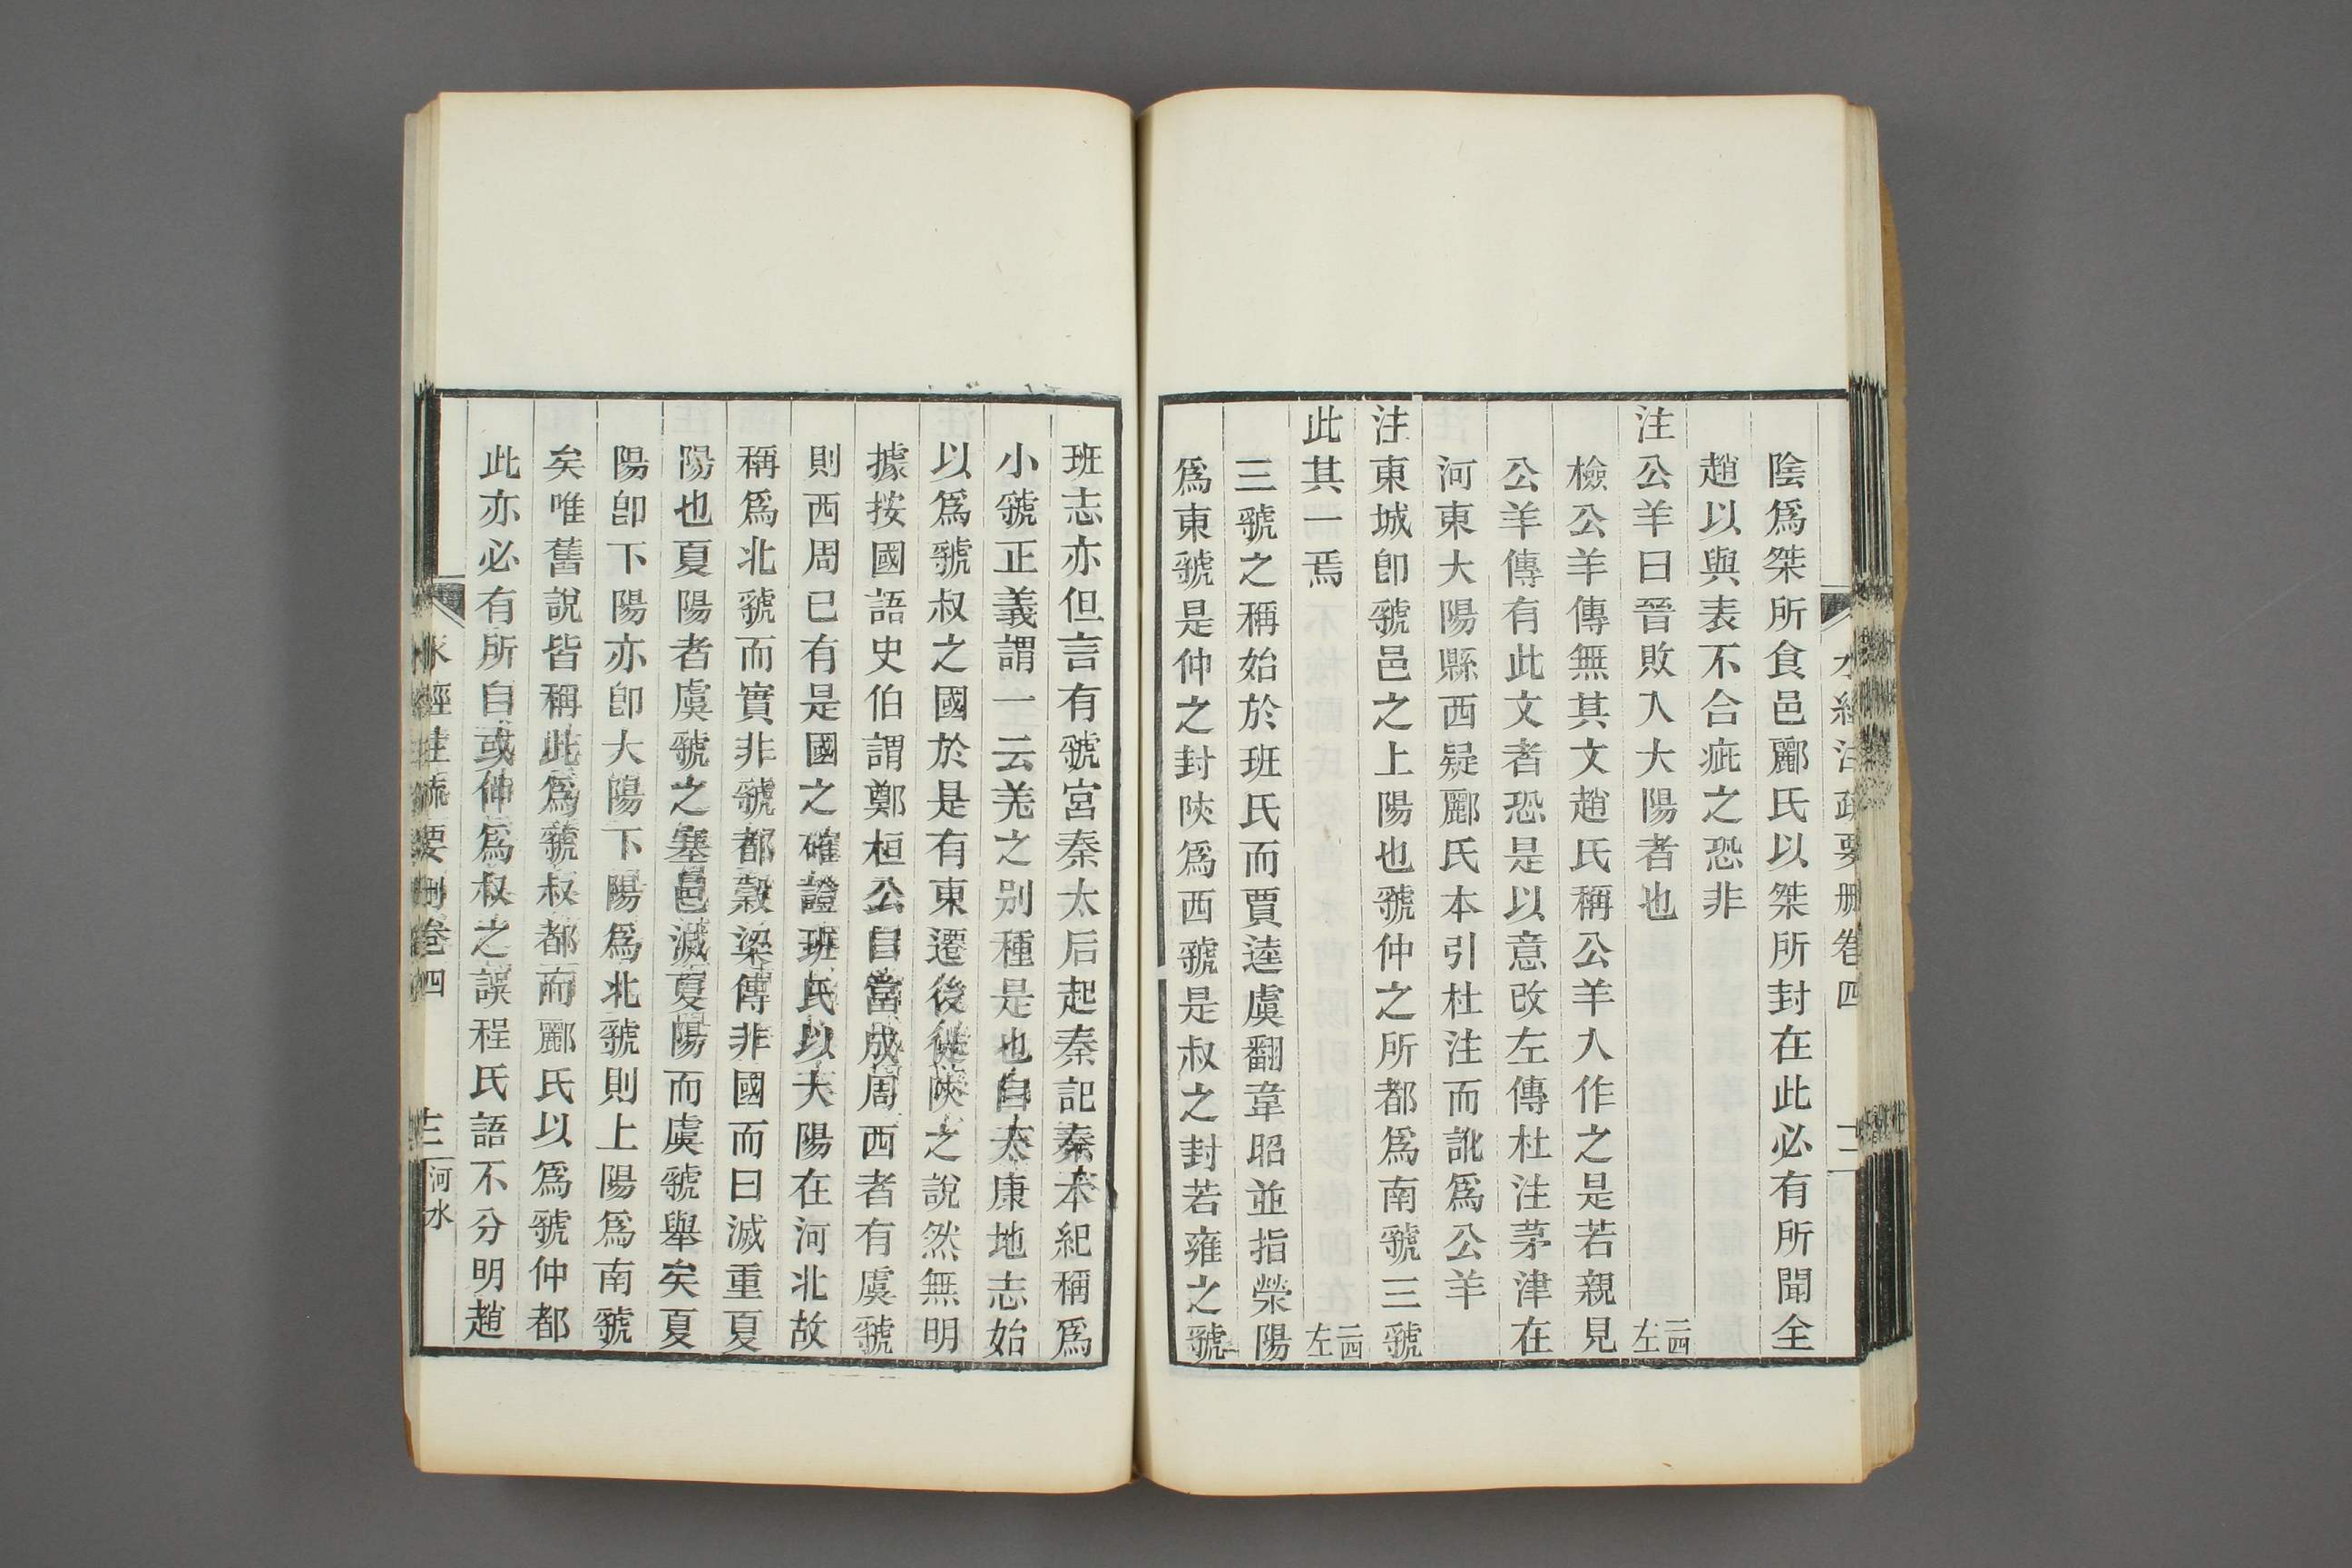 水經注疏要刪卷四
陰爲桀所食邑酈氏以桀所封在此必有所聞全
趙以與表不合疵之恐非
注公羊曰晉敗入大陽者也 二四左
檢公羊傳無其文趙氏稱公羊入作之是若親見
公羊傳有此文者恐是以意改左傳杜注茅津在
河東大陽縣西疑酈氏本引杜注而訛爲公羊
注東城卽虢邑之上陽也虢仲之所都爲南虢三虢
此其一焉 二四左
三虢之稱始於班氏而賈逵虞翻韋昭並指滎陽
爲東虢是仲之封陝爲西虢是叔之封若雍之虢
班志亦但言有虢宮秦太后起秦記秦本紀稱爲
小虢正義謂一云羌之别種是也自太康地志始
以爲虢叔之國於是有東遷後徙陝之說然無明
據按國語史伯謂鄭桓公曰當成周西者有虞虢
則西周已有是國之確證班氏以大陽在河北故
稱爲北虢而實非虢都穀梁傳非國而曰滅重夏
陽也夏陽者虞虢之塞邑滅夏陽而虞虢舉矣夏
陽卽下陽亦卽大陽下陽爲北虢則上陽爲南虢
矣唯舊說皆稱此爲虢叔都而酈氏以爲虢仲都
此亦必有所自或仲爲叔之誤程氏語不分明趙
水經注疏要刪卷四 十三 河水